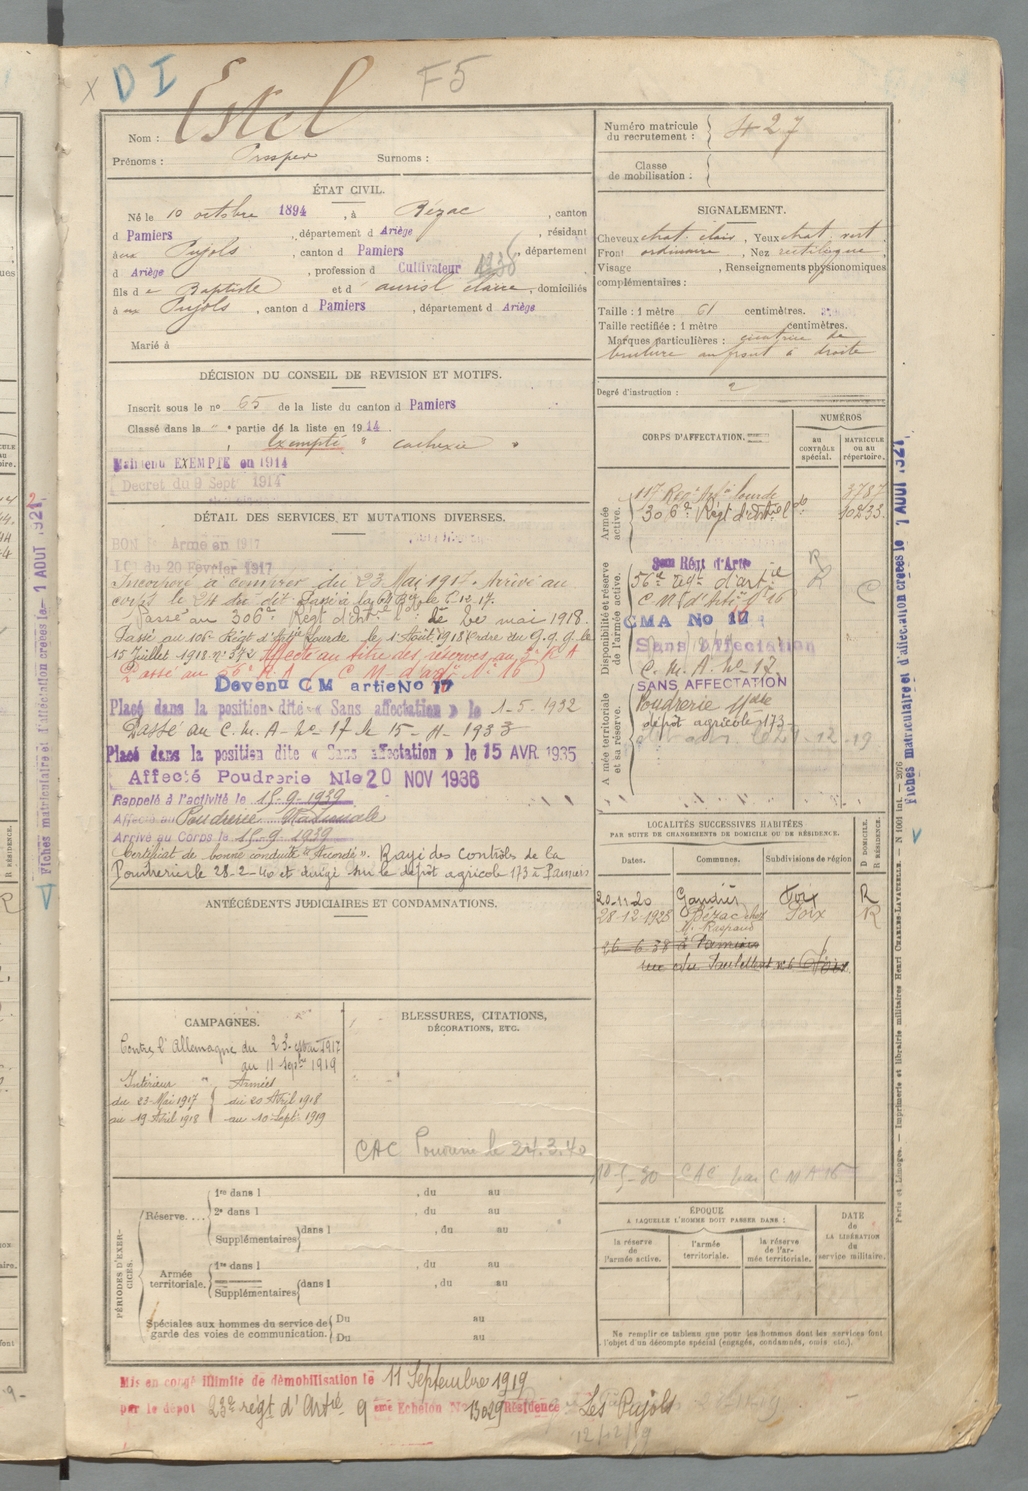 x D I
F5
Nom : Estel
Prénoms : Prosper Surnoms :
Numéro matricule du recrutement : 427
Classe de mobilisation :
ÉTAT CIVIL.
Né le 10 octobre 1894, à Bézac, canton
d Pamiers, département d Ariège, résidant
à aux Pujols, canton d Pamiers, département
d Ariège, profession d Cultivateur
fils de Baptiste et d , domiciliés
à aux Pujols, canton d Pamiers, département d Ariège
Marié à
DÉCISION DU CONSEIL DE REVISION ET MOTIFS.
Inscrit sous le no 65 de la liste du canton d Pamiers
Classé dans la " partie de la liste en 1914
Exempté " cachexie "
Maintenu EXEMPTÉ en 1914
Décret du 9 Sept 1914
DÉTAIL DES SERVICES, ET MUTATIONS DIVERSES.
BON Armé en 1917
du 20 Février 1917
Incorporé à compter du 23 Mai 1917. Arrivé au
corps le 24 du dit. Passé à la le 6.12.17.
Passé au 306e Régt d'Artie le 1er mai 1918.
Passé au 106e Régt d'Artie Lourde le 1 Août 1918 Ordre du G.Q.G. le
15 Juillet 1918 no 372 Affecté au titre des réserves au R A
Passé au 56e R.A. ( C M d'artie No 16 )
Devenu C M artie No 17
Placé dans la position dite « Sans affectation » le 1-5-1932
Passé au C.M.A. No 17 le 15-4-1933
Placé dans la position dite « Sans affectation » le 15 AVR 1935
Affecté Poudrerie Nle 20 NOV 1936
Rappelé à l'activité le 15-9-1939
Affecté au Poudrerie Nationale
Arrivé au Corps le 15-9-1939
Certificat de bonne conduite "Accordé". Rayé des Contrôles de la
Poudrerie le 28-2-40 et dirigé sur le dépôt agricole 173 à Pamiers
ANTÉCÉDENTS JUDICIAIRES ET CONDAMNATIONS.
CAMPAGNES.
Contre l'Allemagne du 23 mai 1917
au 11 septbre 1919
Intérieur " Armées
du 23 Mai 1917 du 20 Avril 1918
au 19 Avril 1918 au 10 Septr 1919
BLESSURES, CITATIONS,
DÉCORATIONS, ETC.
CAC Poudrerie le 24.3.40
PÉRIODES D'EXERCICES.
Réserve....
1re dans l , du au
2e dans l , du au
Supplémentaires dans l , du au
Armée territoriale.
1re dans l , du au
Supplémentaires dans l , du au
Spéciales aux hommes du service de garde des voies de communication.
Du au
Du au
SIGNALEMENT.
Cheveux chat. clair, Yeux chat. vert,
Front ordinaire, Nez rectiligne,
Visage , Renseignements physionomiques
complémentaires :
Taille : 1 mètre 61 centimètres.
Taille rectifiée : 1 mètre centimètres.
Marques particulières : cicatrice de
brulure au front à droite
Degré d'instruction : 2
CORPS D'AFFECTATION.
NUMÉROS
au CONTRÔLE spécial.
MATRICULE ou au répertoire.
Armée active.
117 Regt Artie lourde 3787
306e Régt d'Artiel do 10233
Disponibilité et réserve de l'armée active.
Régt d'Artie R
56e régt d'artie R C
C M d'Artie No 16
CMA No 17
Sans Affectation
C. M. A. No 17
SANS AFFECTATION
Armée territoriale et sa réserve.
Poudrerie Nale
dépôt agricole 173
LOCALITÉS SUCCESSIVES HABITÉES
PAR SUITE DE CHANGEMENTS DE DOMICILE OU DE RÉSIDENCE.
Dates. Communes. Subdivisions de région D DOMICILE. R RÉSIDENCE.
20-11-20 Gaudiès Foix R
28-12-1923 Bézac chez Foix R
26-6-38 à Pamiers
rue du Foix
10-5-30 CAC par C M A 16
ÉPOQUE
A LAQUELLE L'HOMME DOIT PASSER DANS :
la réserve de l'armée active.
l'armée territoriale.
la réserve de l'armée territoriale.
DATE de LA LIBÉRATION du service militaire.
Ne remplir ce tableau que pour les hommes dont les services font
l'objet d'un décompte spécial (engagés, condamnés, omis etc.).
Mis en congé illimité de démobilisation le 11 Septembre 1919
par le dépôt 23e régt d'Artie 9ème Echelon No 13029 Résidence Les Pujols
12/12/19
Fiches matriculaire et d'affectation créées le 1 AOUT 1921
Fiches matriculaire et d'affectation créées le 1 AOUT 1921
Paris et Limoges. — Imprimerie et librairie militaires Henri CHARLES-LAVAUZELLE. — N 1001 int — 2076